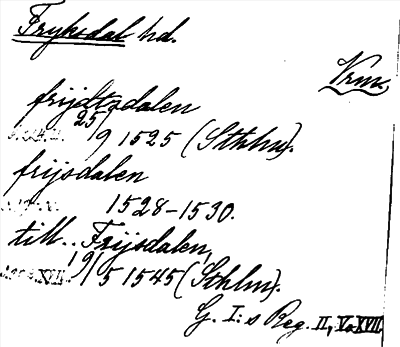 Fryksdal hd.
Vrml.
frijdtzdalen
25/9 1525 (Sthlm).
frijsdalen
1528-1530.
till.. Frijsdalen,
19/5 1545 (Sthlm).
G. I:s Reg. II, V o XVII